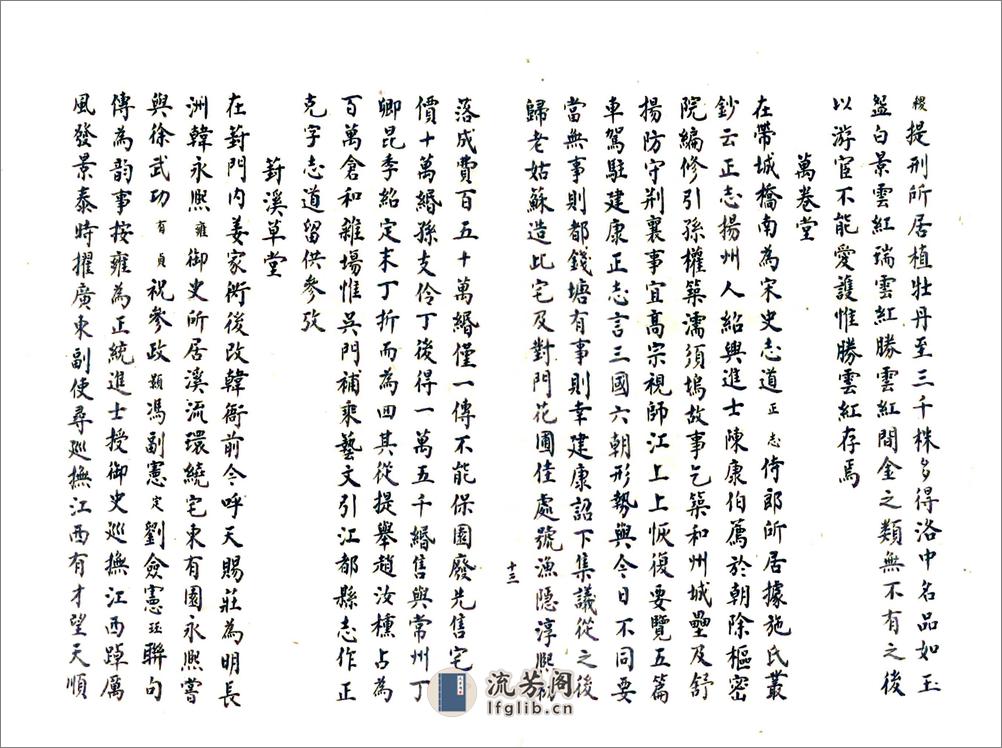 稷提刑所居植牡丹至三千株多得洛中名品如玉
盌白景雲紅瑞雲紅勝雲紅間金之類無不有之後
以游宦不能愛護惟勝雲紅存焉
萬卷堂
在帶城橋南為宋史志道正志侍郎所居據施氏叢
鈔云正志揚州人紹興進士陳康伯薦於朝除樞密
院編修引孫權築濡須塢故事乞築和州城壘及舒
揚防守荆襄事宜高宗視師江上上恢復要覽五篇
車駕駐建康正志言三國六朝形勢與今日不同要
當無事則都錢塘有事則幸建康詔下集議從之後
歸老姑蘇造此宅及對門花圃佳處號漁隱淳熙初
十三
落成費百五十萬緡僅一傳不能保園廢先售宅
價十萬緡孫支伶丁後得一萬五千緡售與常州丁
卿昆季紹定末丁折而為四其從提舉趙汝櫄占為
百萬倉和糴場惟吳門補乘藝文引江都縣志作正
克字志道留供參攷
葑溪草堂
在葑門内姜家衖後改韓衙前今呼天賜莊為明長
洲韓永熙雍御史所居溪流環繞宅東有園永熙嘗
與徐武功有貞祝參政顥馮副憲定劉僉憲珏聯句
傳為韵事按雍為正統進士授御史巡撫江西踔厲
風發景泰時擢廣東副使尋巡撫江西有才望天順
流芳阁
lfglib.cn